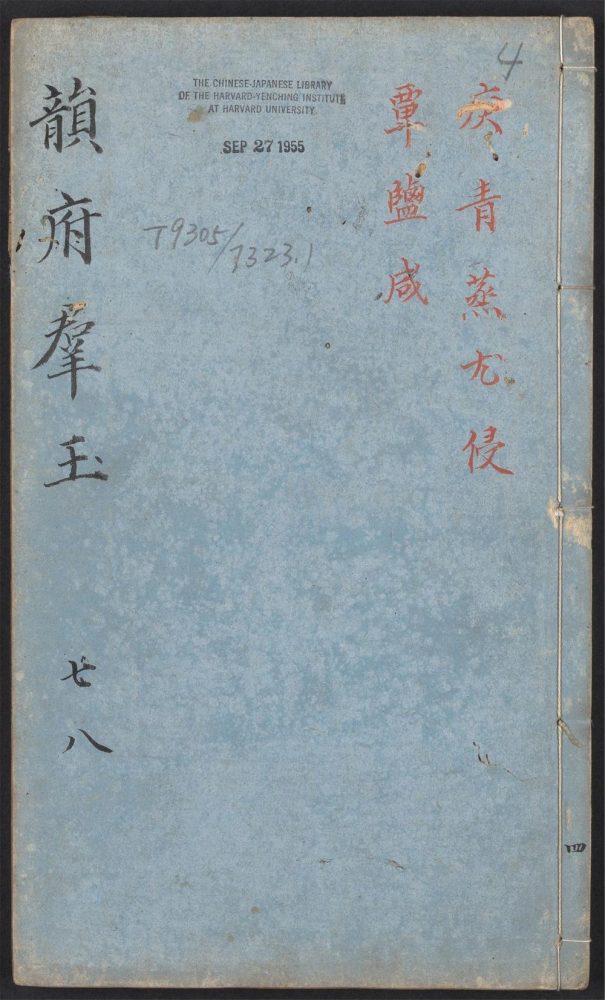 4
庚青蒸尤侵
覃鹽咸
THE CHINESE-JAPANESE LIBRARY
OF THE HARVARD-YENCHING INSTITUTE
AT HARVARD UNIVERSITY
SEP 27 1955
T9305/7323.1
韻府羣玉
七八
四